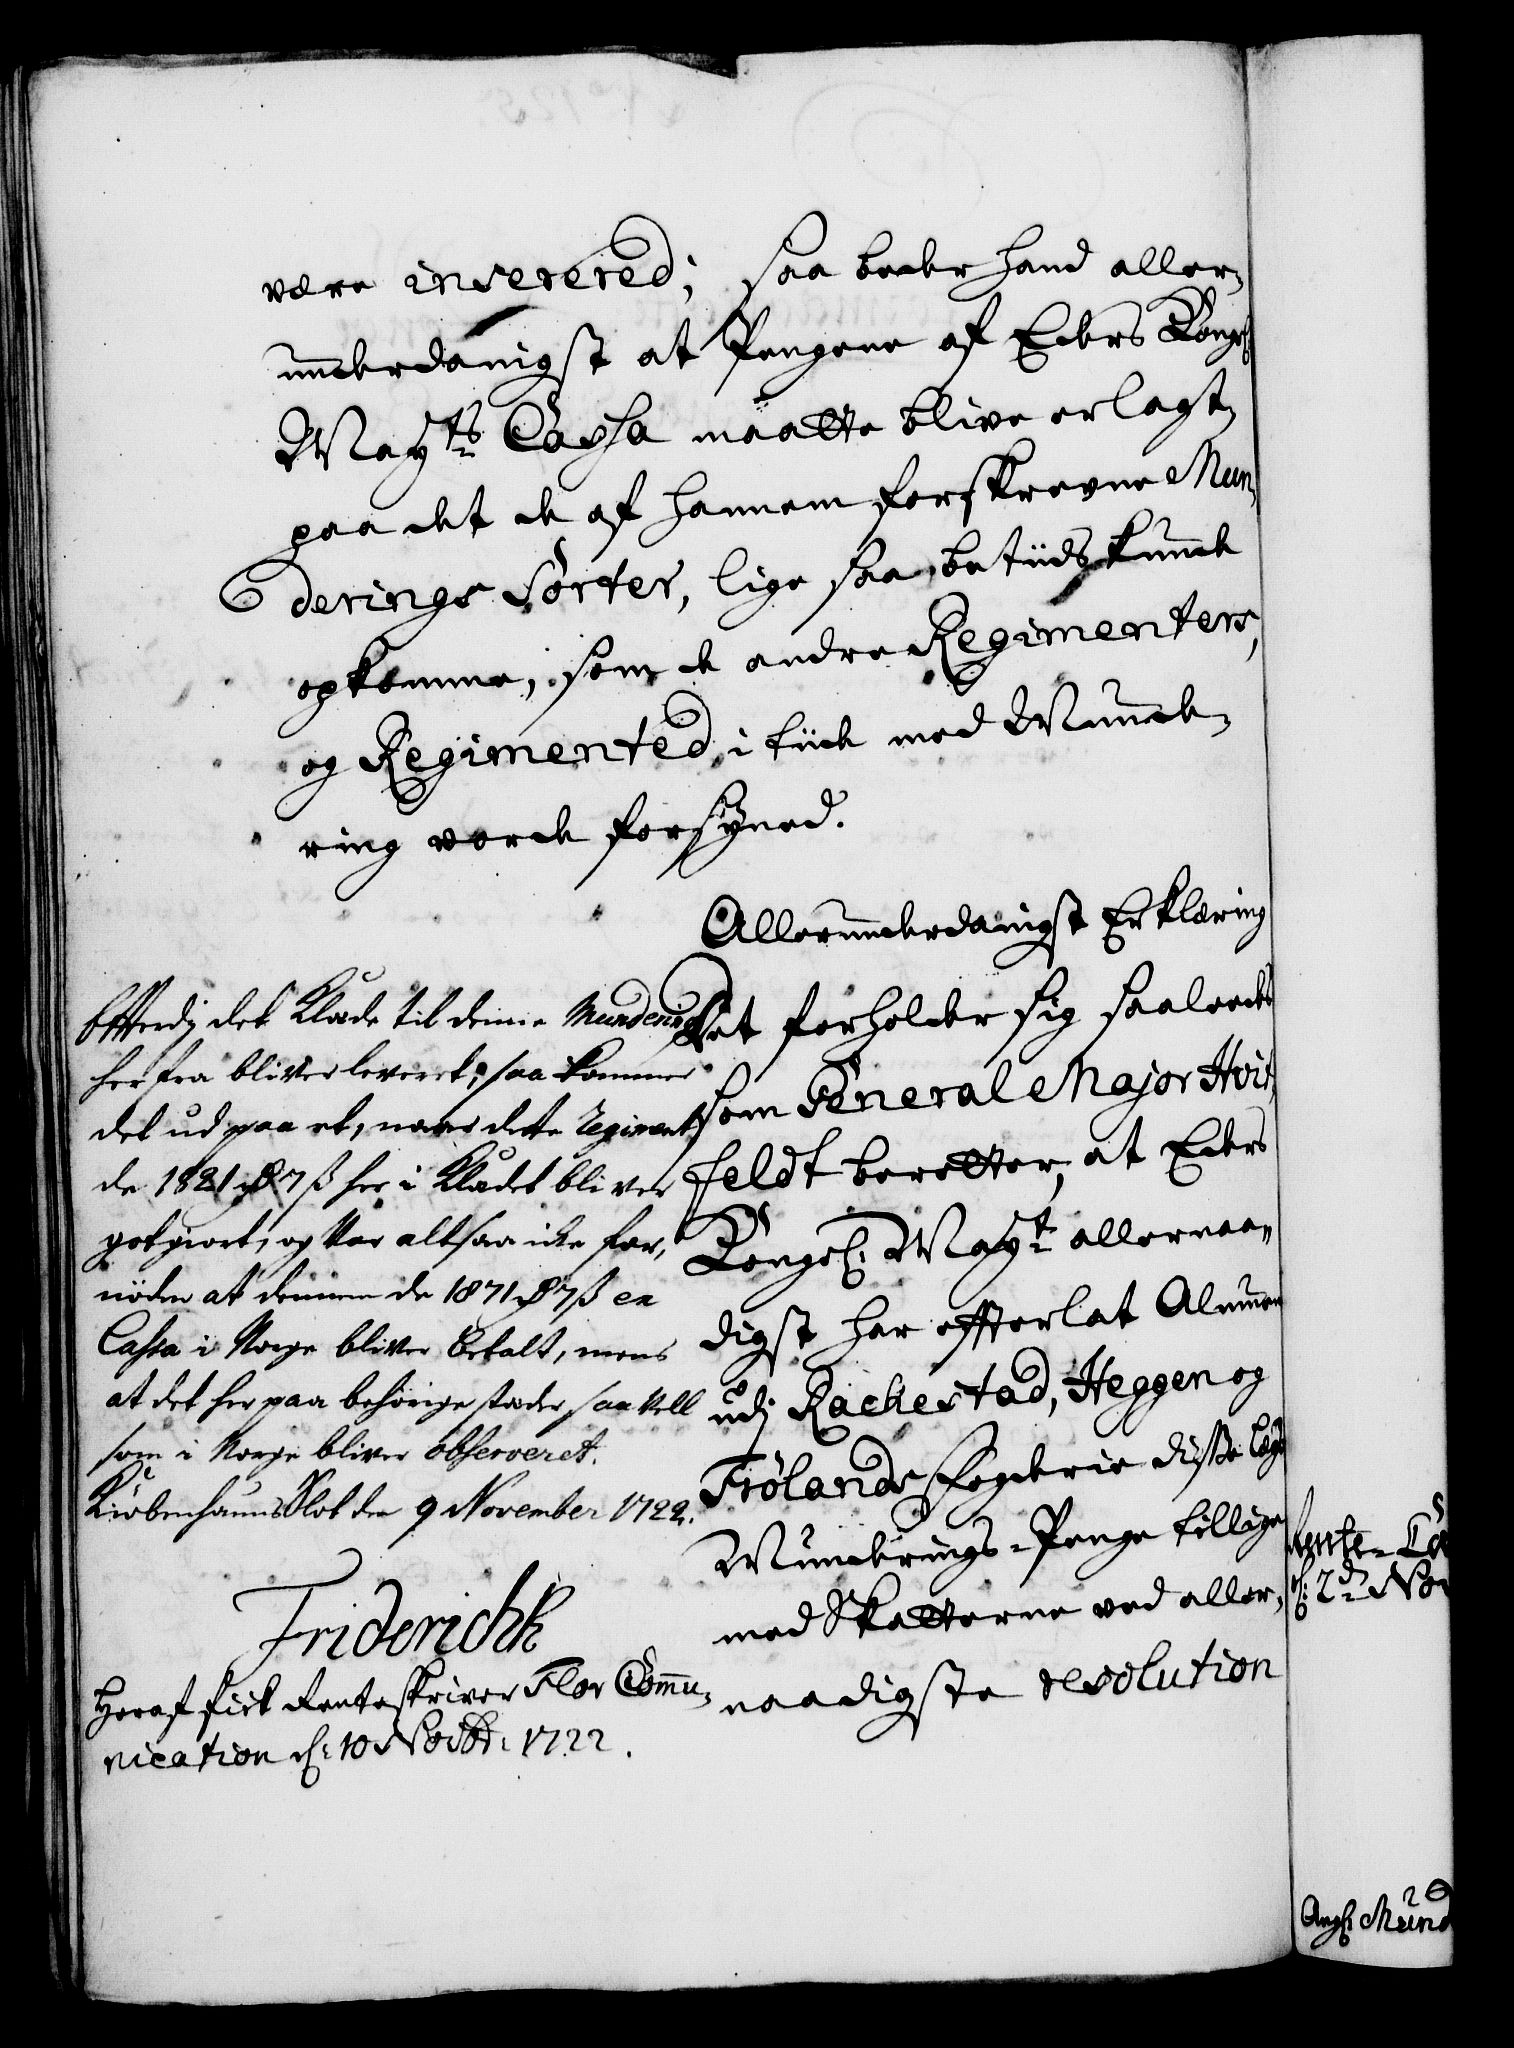 være inserered; saa beder hand aller-
underdanigst at Pengene af Eders Kongl:
May:ts Cassa maatte blive erlagt,
paa det de af hannem forskrevne Mun-
derings Sorter, lige saa betiids kunde
opkomme, som de andre Regimenters,
og Regimented i tiide med Munde-
ring vorde forsÿned.
Allerunderdanigst Erklæring
Det forholder sig saaleedes
som General Major Hvit-
feldt beretter, at Eders
Kongel: May:t allernaa-
digst har efterlat Almuen
udj Rackestad, Heggen og
Frölands Fogderie disse Lægs
Munderings-Penge tillige
med Skatterne ved aller-
naadigste resolution
Efterdj det Klæde til denne Mundering
her fra bliver leveret; saa kommer
det ud paa et, naar dette Regiment
de 1821 rd 7 ß her i Klædet bliver
gotgiort, og var altsaa icke for-
nöden at denne de 1871 rd 7 ß ex
Cassa i Norge bliver betalt, mens
at det her paa behörige stæder saa vell
som i Norge bliver observeret.
Kiöbenhauns Slot den 9 November 1722.
Friderich R
Heraf fick Renteskriver Flor Commu-
nication d: 10 Novbr: 1722.
Rente-
d: 2d Nov
Ang: Mund